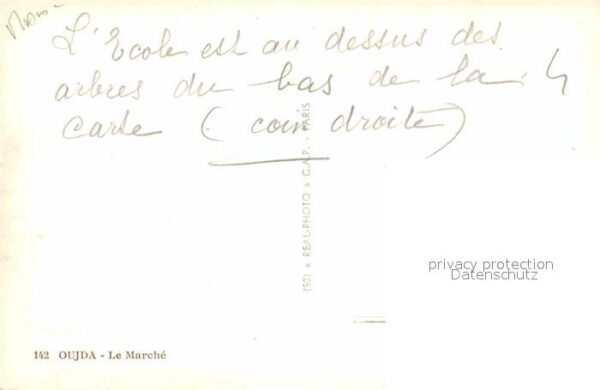 Maroc
L'Ecole est au dessus des
arbres du bas de la
carte (coin droite)
(53) * REAL-PHOTO * C.A.P. - PARIS
privacy protection
Datenschutz
142 OUJDA - Le Marché